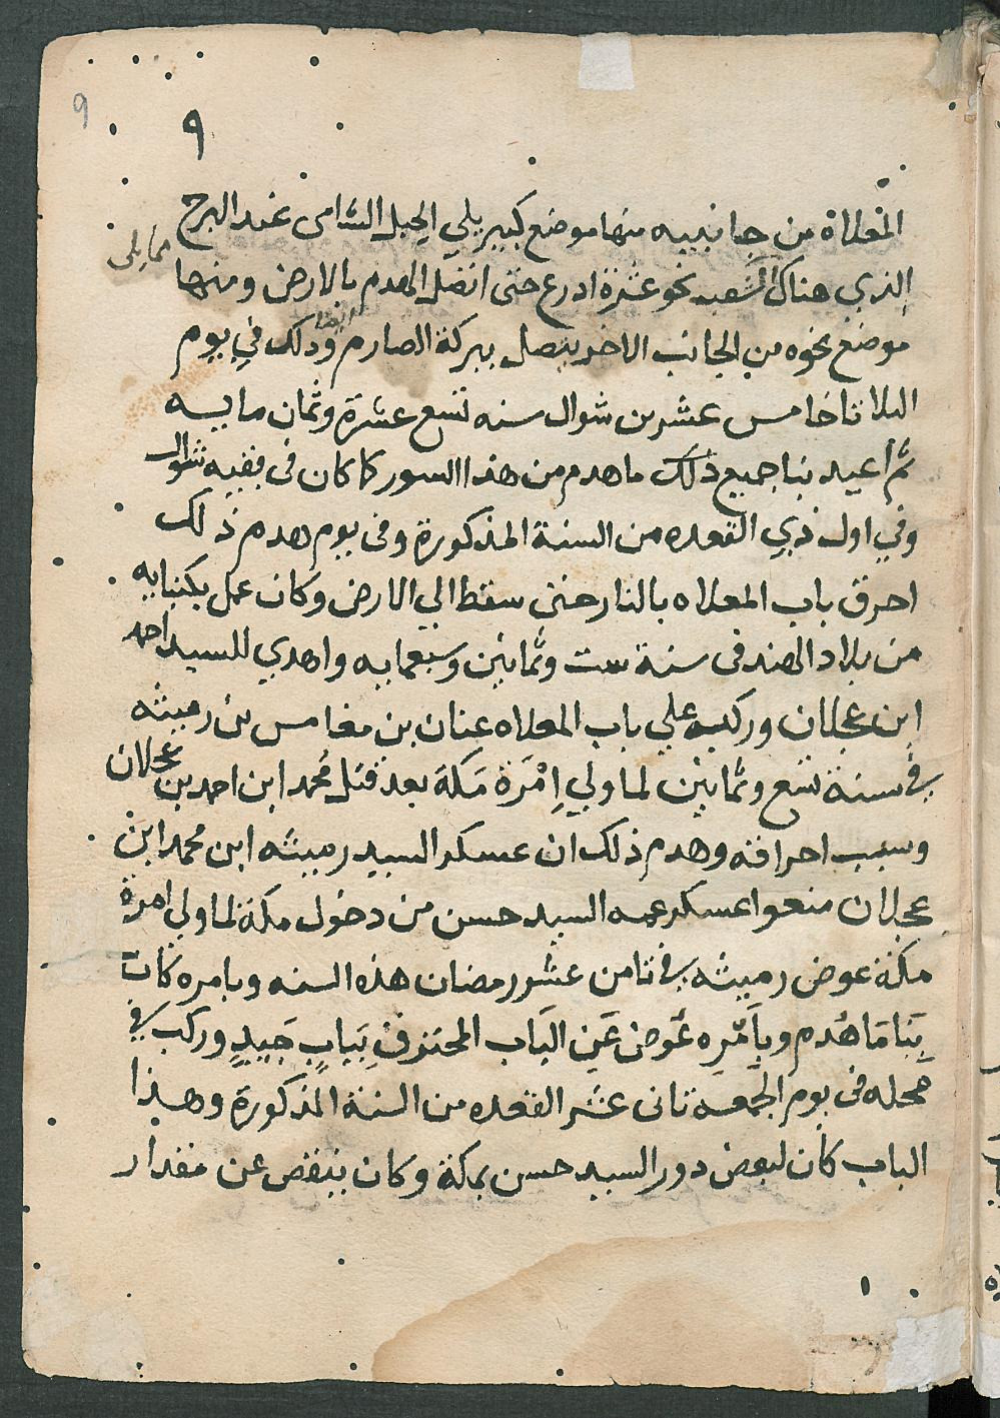 9
٩
المعلاة من جانبيه منها موضع كبير يلي الجبل الشامي عند البرج
مما يلي
الذي هناك الشعبه نحو عشرة اذرع حتى اتصل الهدم بالارض ومنها
موضع نحوه من الجانب الاخر يتصل ببركة الصارم وذلك في يوم
ايضا
الثلاثا خامس عشرين شوال سنه تسع عشرة وثمان مايه
ثم اعيد بنا جميع ذلك ما هدم من هذا السور كما كان في بقيه شوال
وفي اول ذي القعده من السنة المذكورة وفي يوم هدم ذلك
احرق باب المعلاه بالنار حتى سقط الي الارض وكان عمل بكنبايه
من بلاد الهند في سنة ست وثمانين وسبعمايه واهدي للسيد احمد
ابن عجلان وركبه علي باب المعلاه عنان بن مغامس بن رميثه
في سنة تسع وثمانين لما ولي اِمْرَة مَكة بعد قتل مُحمد ابن احمد بن عجلان
وسبب احراقه وهدم ذلك ان عسكر السيد رميثه ابن محمد ابن
عجلان منعوا عسكر عمه السيد حسن من دخول مكة لما ولي امرة
مكة عوض رميثه في ثامن عشر رمضان هذه السنه وبامره كان
بَنا مَا هُدم وبِاَمْرِه عُوِّض عَن البَاب المحترق بِبَابٍ جَيدٍ وركب في
محله في يوم الجمعه ثانى عشر القعده من السنة المذكورة وهذا
الباب كان لبعض دور السيد حسن بمكة وكان ينقص عن مقدار